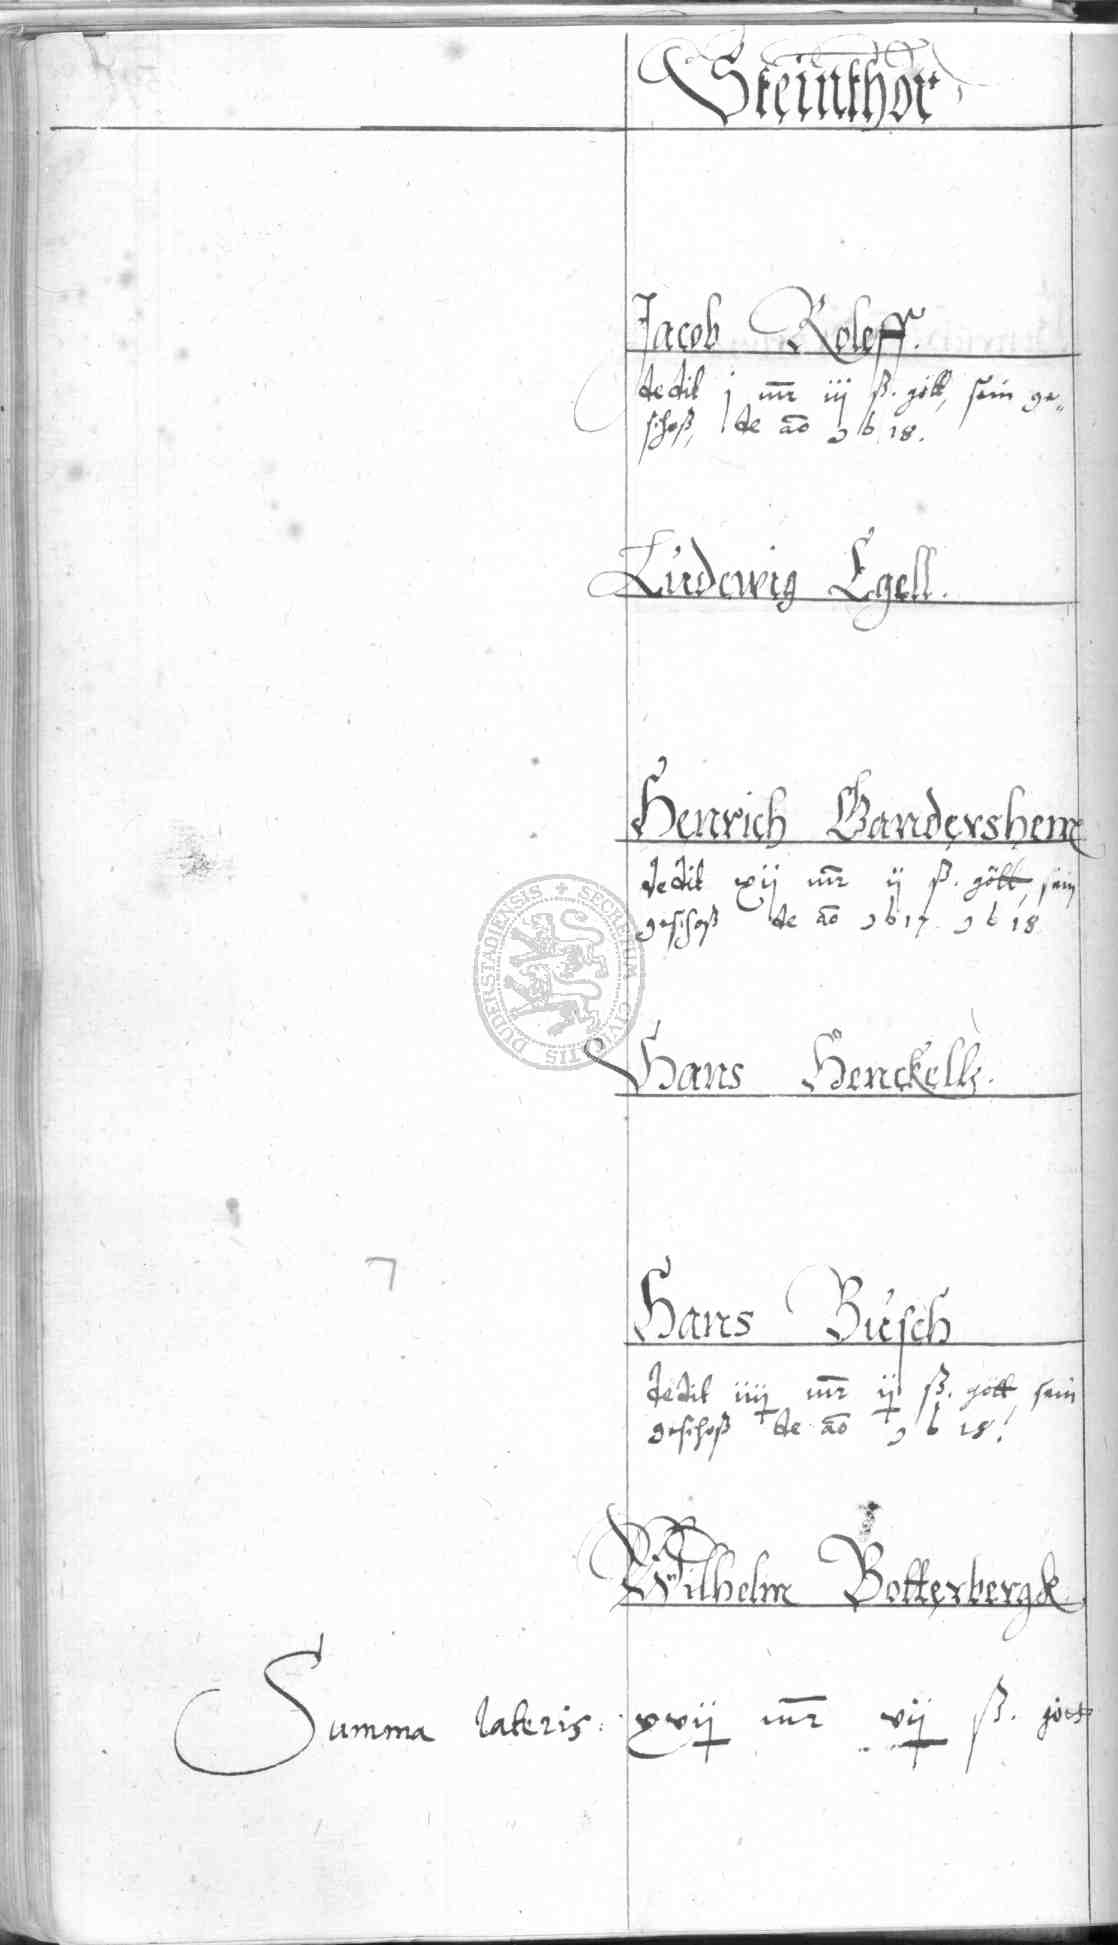 Steinthor
Jacob Roleff.
dedit j mr iij ß. gött, sein ge-
schoß, de ao 1618.
Ludewig Egell.
Henrich Gandershem
dedit xij mr ij ß. gött, sein
geschoß de ao 1617 1618
Hans Henckell.
7
Hans Busch
dedit iiij mr ij ß. gött, sein
geschoß de ao 1618.
Wilhelm Botterbergk
Summa lateris: xvij mr vij ß. gött
SECRETUM CIVITATIS DUDERSTADIENSIS